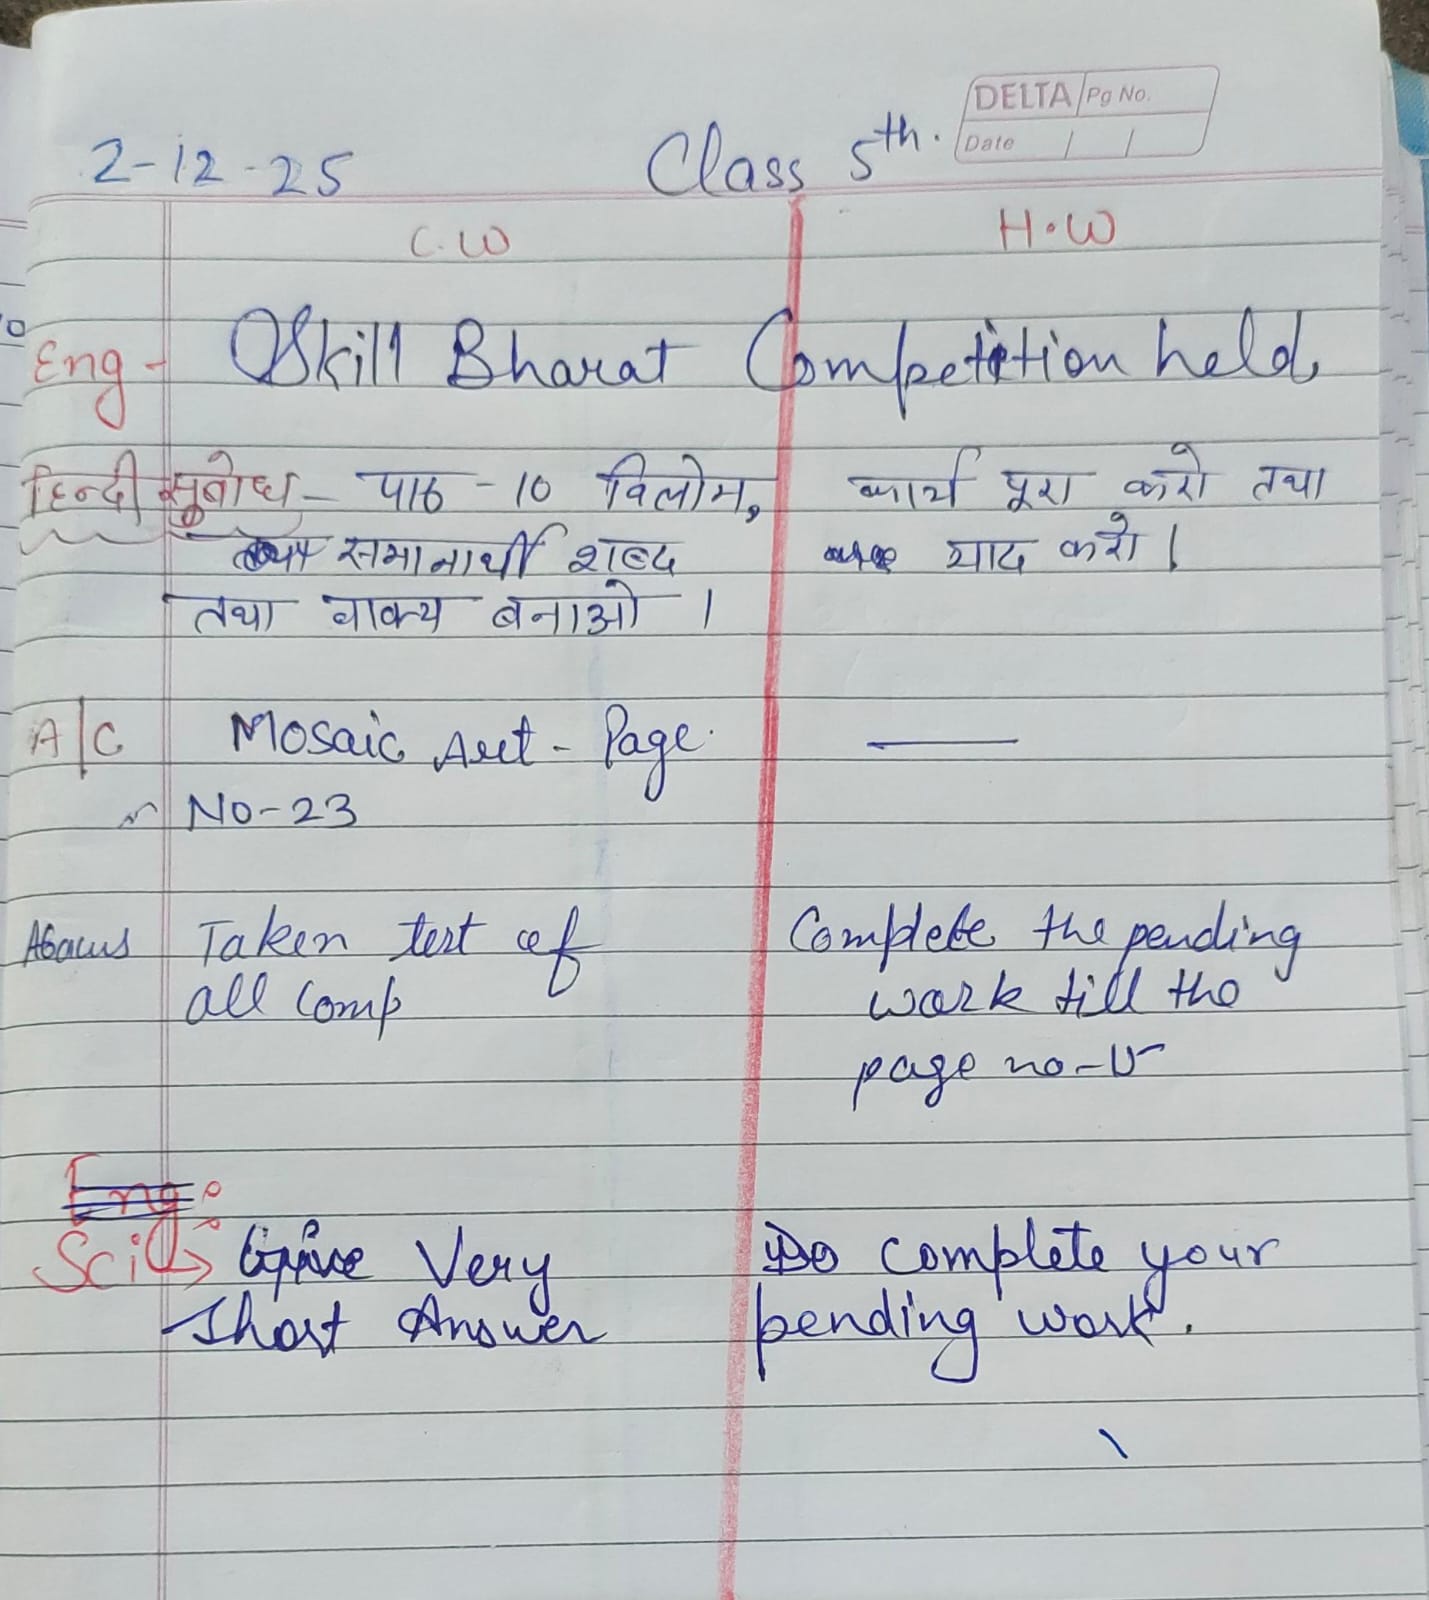 DELTA Pg No.
Date / /
2-12-25 Class 5th.
C.W H.W
Eng - Skill Bharat Competition held
हिन्दी सुबोध - पाठ - 10 विलोम, कार्य पूरा करो तथा
समानार्थी शब्द याद करो।
तथा वाक्य बनाओ।
A/C Mosaic Art - Page
No-23
Abacus Taken test of Complete the pending
all Comp work till the
page no-
Eng:
Sci: Give Very Do complete your
Short Answer pending work.